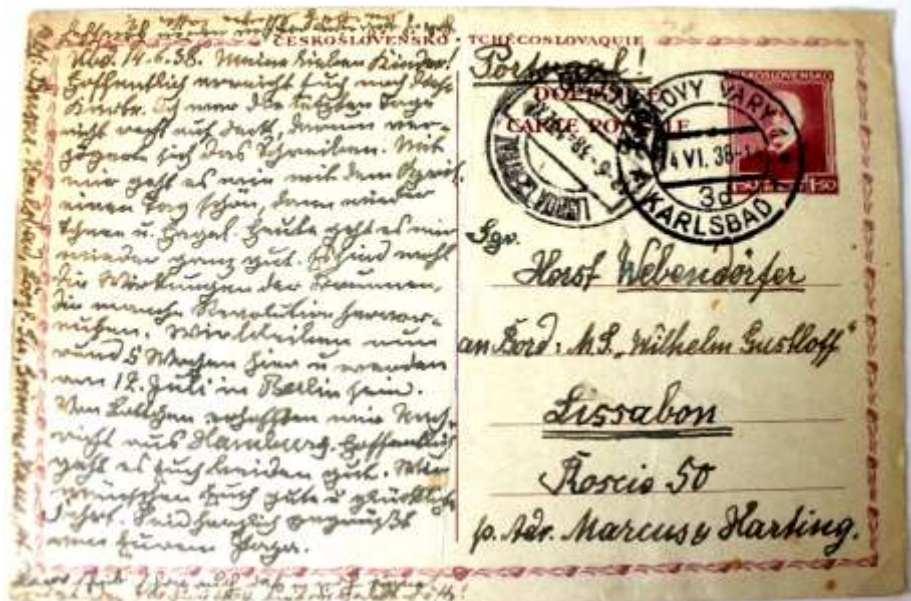 ČESKOSLOVENSKO - TCHÉCOSLOVAQUIE
14.6.38. Meine lieben Kinder!
Hoffentlich erreicht Euch noch diese
Karte. Ich war die letzten Tage
nicht recht auf Deck, darum ver-
zögern sich das Schreiben. Mit
mir geht es wie mit dem
einen Tag schön, dann wieder
u. Hagel. Heute geht es mir
wieder ganz gut. Es sind wohl
die Wirkungen der Brunnen,
die manche Revolution hervor-
rufen. Wir bleiben nun
rund 5 Wochen hier u. werden
am 12. Juli in Berlin sein.
Von erhofften wir Nach-
richt aus Hamburg. Hoffentlich
geht es Euch beiden gut. Wir
wünschen Euch gute u. glückliche
Fahrt. Seid herzlich gegrüßt
von Eurem Papa.
Portugal!
ČESKOSLOVENSKO
CARTE POSTALE
KARLOVY VARY
14 VI. 38
3d
KARLSBAD
LISBOA CENTRAL
1·50 1·50
Horst Webendörfer
an Bord: M.S. „Wilhelm Gustloff“
Lissabon
Rocio 50
p. Adr. Marcus & Harting.